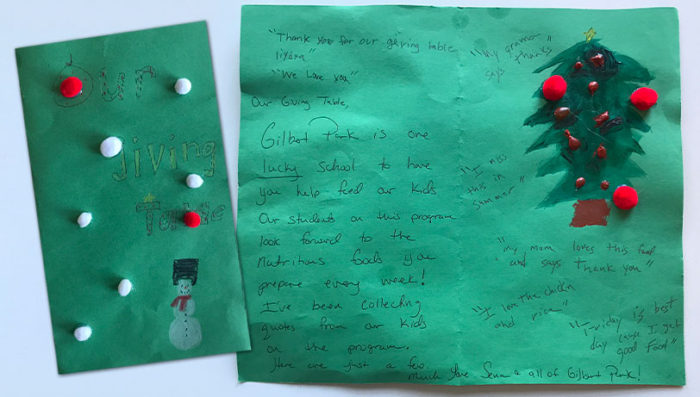 Our
Giving
Table
"Thank you for our giving table
"We Love you"
Our Giving Table,
Gilbert Park is one
lucky School to have
you help feed our kids
Our students on this program
look forward to the
nutritious foods you
prepare every week!
I've been collecting
quotes from our kids
on the program.
Here are just a few.
Much love. & all of Gilbert Park!
"My
says thanks"
"I miss
this in
Summer"
"my mom loves this food
and says thank you"
"I love the chicken
and rice"
"Friday is best
day cause I get
good food"